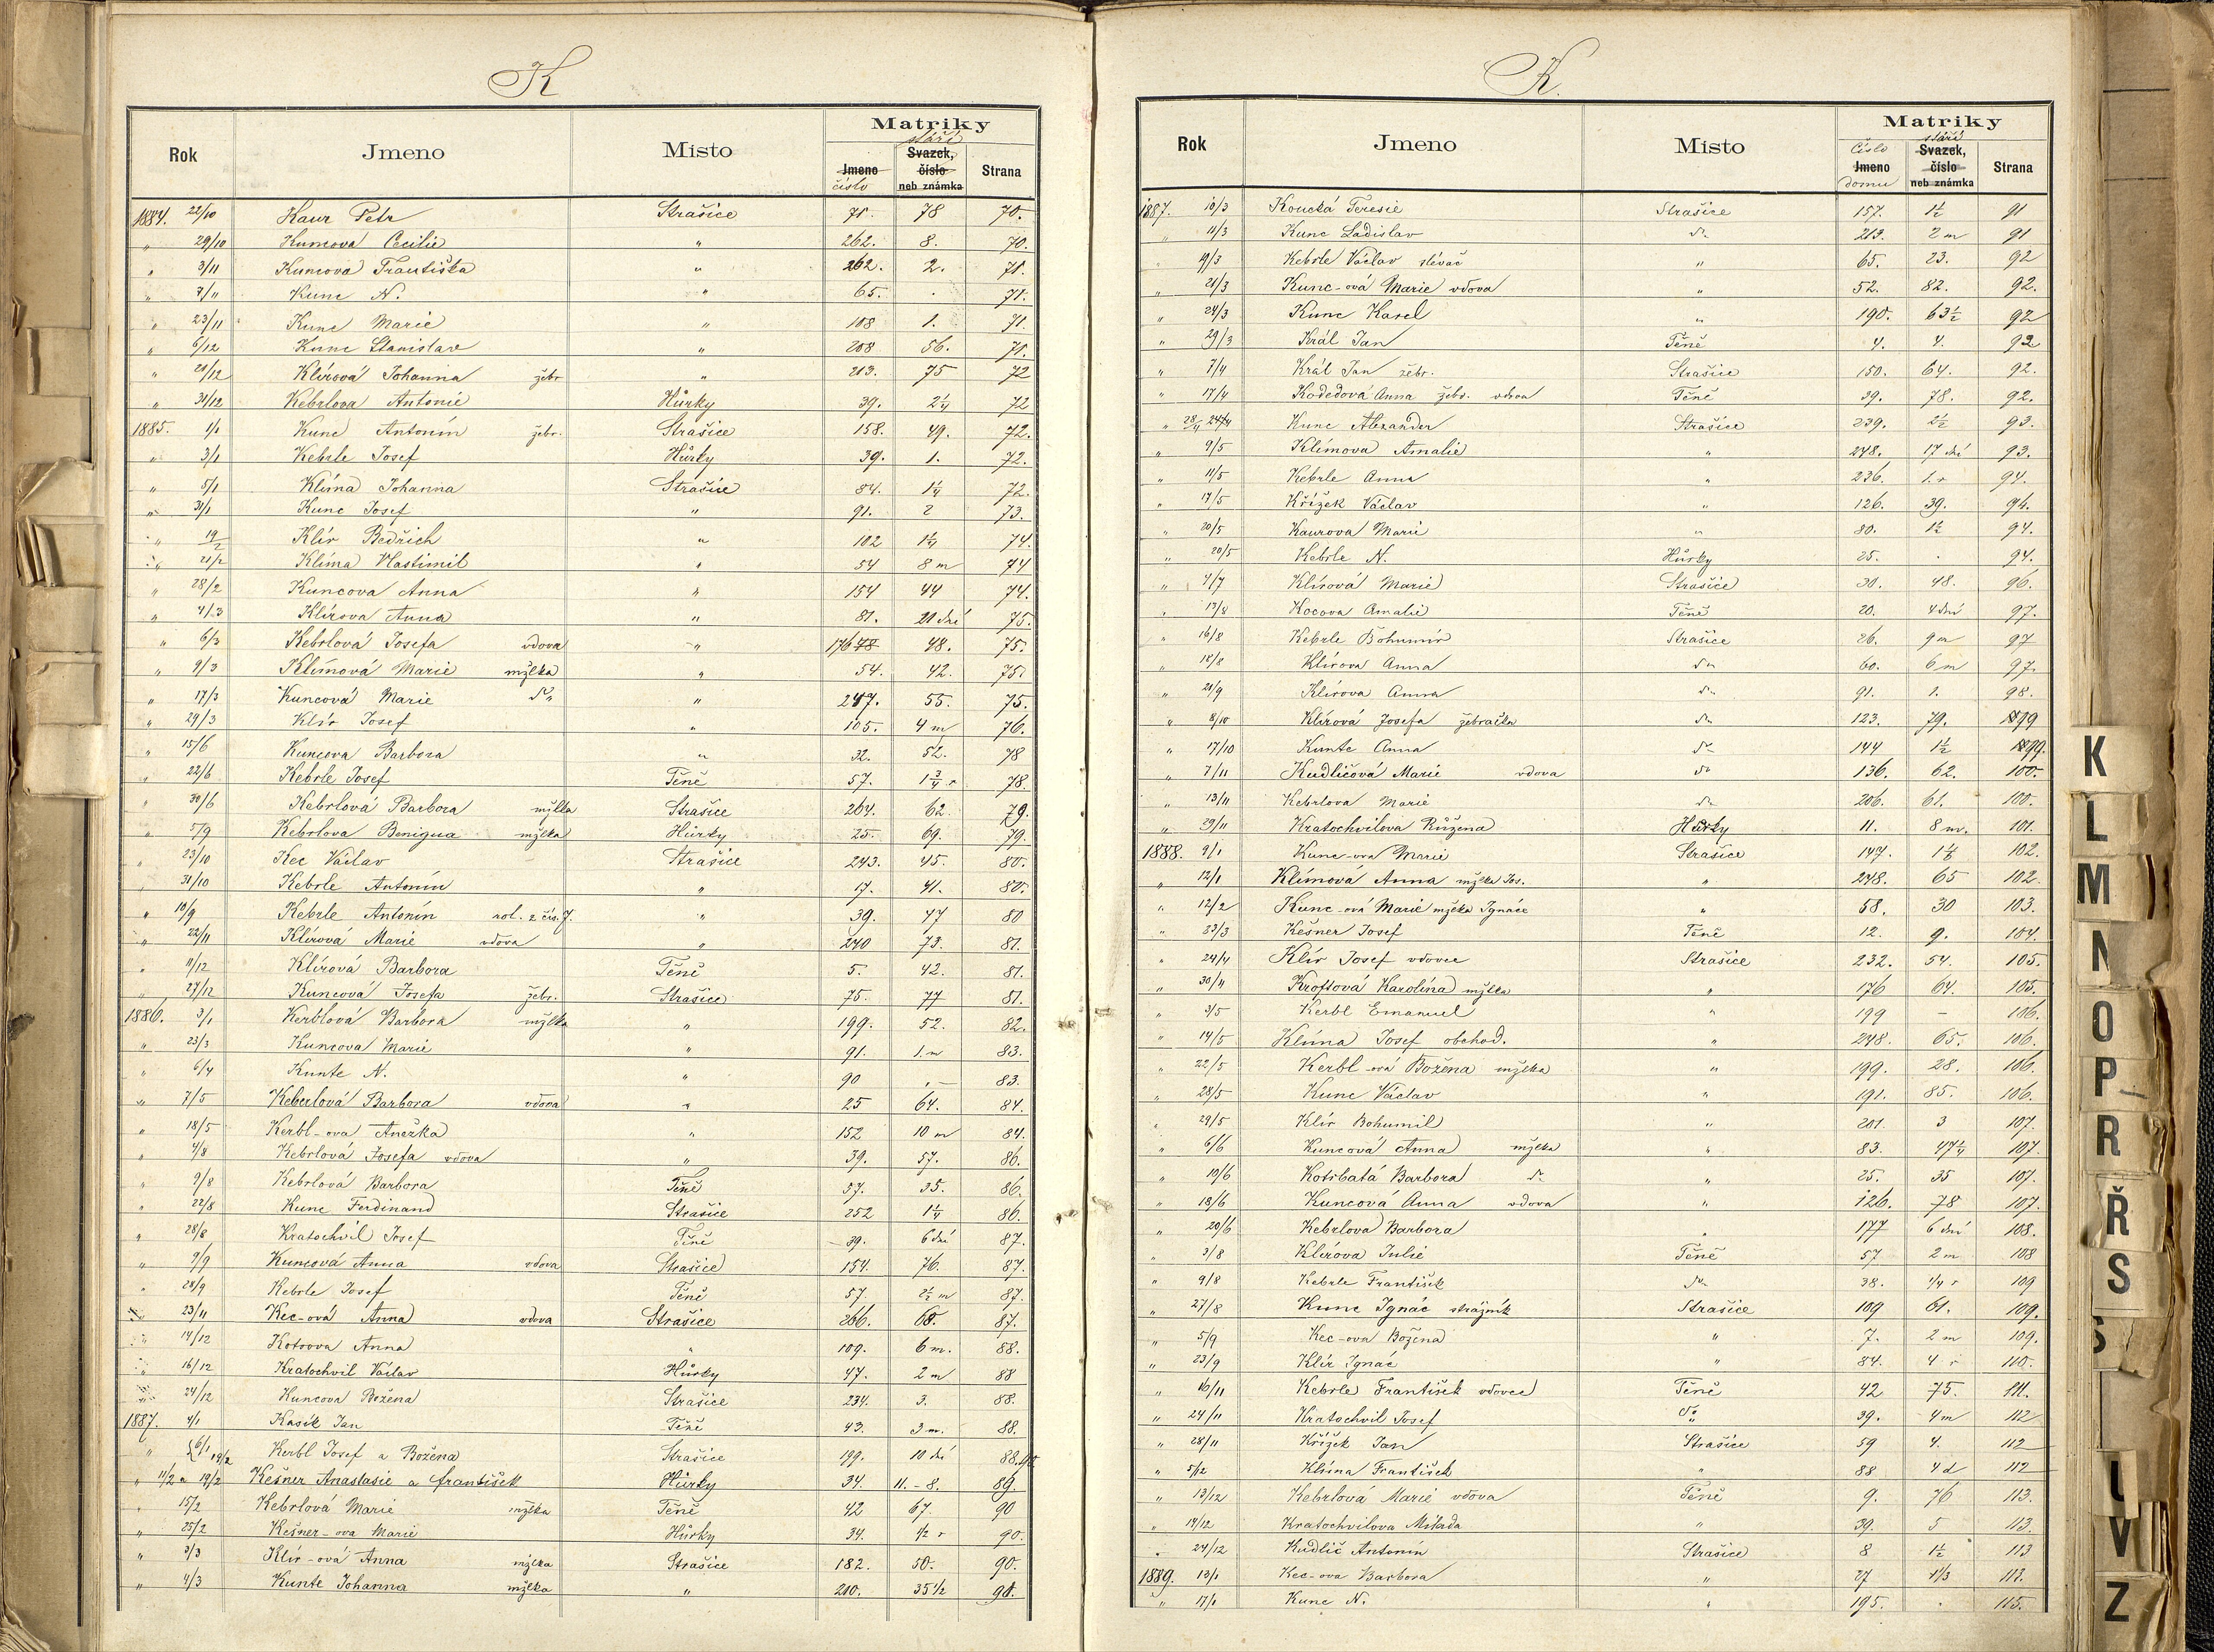 K
Rok Jmeno Místo Matriky
stáří
Jmeno číslo Svazek, číslo neb známka Strana
1884. 22/10 Kaur Petr Strašice 71. 78 70.
" 29/10 Kuncova Cecilie " 262. 8. 70.
" 3/11 Kuncová Františka " 262. 2. 71.
" 7/11 Kunc N. " 65. . 71.
" 23/11 Kunc Marie " 108 1. 71.
" 6/12 Kunc Stanislav " 208 56. 71.
" 20/12 Klírová Johanna žebr " 213. 75 72
" 31/12 Kebrlova Antonie Hůrky 39. 2 1/4 72
1885. 1/1 Kunc Antonín žebr. Strašice 158. 49. 72.
" 3/1 Kebrle Josef Hůrky 39. 1. 72.
" 5/1 Klíma Johanna Strašice 84. 1 1/4 72.
" 31/1 Kunc Josef " 91. 2 73.
" 19/2 Klír Bedřich " 102 1 1/4 74.
" 21/2 Klíma Vlastimil " 54 8 m 74
" 28/2 Kuncova Anna " 154 44 74.
" 4/3 Klírova Anna " 81. 21 dní 75.
" 6/3 Kebrlová Josefa vdova " 176 48. 75.
" 9/3 Klímová Marie mžlka " 54. 42. 75.
" 17/3 Kuncová Marie dto " 247. 55. 75.
" 29/3 Klír Josef " 105. 4 m 76.
" 15/6 Kuncova Barbora " 32. 52. 78
" 22/6 Kebrle Josef Těně 57. 1 3/4 r 78.
" 30/6 Kebrlová Barbora mžlka Strašice 264. 62. 79.
" 5/9 Kebrlova Benigna mžlka Hůrky 25. 69. 79.
" 23/10 Kec Václav Strašice 243. 45. 80.
" 31/10 Kebrle Antonín " 17. 41. 80.
" 10/9 Kebrle Antonín rol. z čís. 7. " 39. 47 80
" 22/11 Klírová Marie vdova " 240 73. 81.
" 11/12 Klírová Barbora Těně 5. 42. 81.
" 27/12 Kuncová Josefa žebr. Strašice 75. 77 81.
1886. 3/1 Kerblová Barbora mžlka " 199. 52. 82.
" 23/3 Kuncova Marie " 91. 1. m 83.
" 6/4 Kunte N. " 90 . – 83.
" 7/5 Keberlová Barbora vdova " 25 64. 84.
" 18/5 Kerbl-ova Anežka " 152 10 m 84.
" 4/8 Kebrlová Josefa vdova " 39. 57. 86.
" 9/8 Kebrlová Barbora Těně 57. 35. 86.
" 22/8 Kunc Ferdinand Strašice 252 1 1/4 86.
" 28/8 Kratochvíl Josef Těně 39. 6 dní 87.
" 9/9 Kuncová Anna vdova Strašice 154. 76. 87.
" 28/9 Kebrle Josef Těně 57. 2 1/2 m 87.
" 23/11 Kec-ová Anna vdova Strašice 266. 68. 87.
" 14/12 Kotrova Anna " 109. 6 m. 88.
" 16/12 Kratochvíl Václav Hůrky 47. 2 m 88
" 24/12 Kuncova Božena Strašice 234. 3. 88.
1887. 4/1 Kasík Jan Těně 43. 3 m. 88.
" 6/1 19/2 Kerbl Josef a Božena Strašice 199. 10 dní 88.
" 11/2 a 19/2 Kešner Anastasie a František Hůrky 34. 11. - 8. 89.
" 15/2 Kebrlová Marie mžlka Těně 42 67. 90
" 25/2 Kešner-ova Marie Hůrky 34. 1/2 r 90.
" 3/3 Klír-ová Anna mžlka Strašice 182. 50. 90.
" 4/3 Kunte Johanna mžlka " 210. 35 1/2 91.
K.
Rok Jmeno Místo Matriky
stáří
Číslo Jmeno domu Svazek, číslo neb známka Strana
1887. 10/3 Koucká Teresie Strašice 157. 1 1/2 91
" 11/3 Kunc Ladislav dto 213. 2 m 91
" 19/3 Kebrle Václav slévač " 65. 23. 92
" 21/3 Kunc-ová Marie vdova " 52. 82. 92.
" 24/3 Kunc Karel " 190. 63 1/2 92
" 29/3 Král Jan Těně 4. 4. 92
" 7/4 Král Jan žebr. Strašice 150. 64. 92.
" 17/4 Kodedová Anna žebr. vdova Těně 39. 78. 92.
" 28/4 24/4 Kunc Alexander Strašice 239. 2 1/2 93.
" 9/5 Klímova Amalie " 248. 17 dní 93.
" 11/5 Kebrle Anna " 236. 1. r 94.
" 17/5 Křížek Václav " 126. 39. 94.
" 20/5 Kaurova Marie " 80. 1 1/2 94.
" 20/5 Kebrle N. Hůrky 25. . 94.
" 4/7 Klírová Marie Strašice 30. 48. 96.
" 13/8 Kocova Amalie Těně 20. 4 dní 97.
" 16/8 Kebrle Bohumír Strašice 26. 9 m 97
" 18/8 Klírova Anna dto 60. 6 m 97.
" 21/9 Klírova Anna dto 91. 1. 98.
" 8/10 Klírová Josefa žebračka dto 123. 79. 99
" 17/10 Kunte Anna dto 144 1 1/2 99.
" 7/11 Kudličová Marie vdova dto 136. 62. 100.
" 13/11 Kebrlova Marie dto 206. 61. 100.
" 29/11 Kratochvílova Růžena Hůrky 11. 8 m. 101.
1888. 9/1 Kunc-ova Marie Strašice 147. 102.
" 12/1 Klímová Anna mžlka Jos. " 248. 65 102.
" 12/2 Kunc-ová Marie mžlka Ignáce " 58. 30 103.
" 23/3 Kešner Josef Těně 12. 9. 104.
" 24/4 Klír Josef vdovec Strašice 232. 54. 105.
" 30/4 Kroftová Karolína mžlka " 176 64. 105.
" 3/5 Kerbl Emanuel " 199 – 106.
" 14/5 Klíma Josef obchod. " 248. 65. 106.
" 22/5 Kerbl-ová Božena mžlka " 199. 28. 106.
" 28/5 Kunc Václav " 191. 85. 106.
" 29/5 Klír Bohumil " 201. 3 107.
" 6/6 Kuncová Anna mžlka " 83. 47 1/4 107.
" 10/6 Kotrbatá Barbora dto " 25. 35 107.
" 18/6 Kuncová Anna vdova " 126. 78 107.
" 20/6 Kebrlova Barbora " 177 6 dní 108.
" 3/8 Klírova Julie Těně 57 2 m 108
" 9/8 Kebrle František dto 38. 1/4 r 109
" 27/8 Kunc Ignác strážník Strašice 109 61. 109.
" 5/9 Kec-ova Božena " 7. 2 m 109.
" 23/9 Klír Ignác " 84. 4 r 110.
" 16/11 Kebrle František vdovec Těně 42 75. 111.
" 24/11 Kratochvíl Josef dto 39. 4 m 112
" 28/11 Křížek Jan Strašice 59 4. 112
" 5/12 Klíma František " 88 4 d 112
" 13/12 Kebrlová Marie vdova Těně 9. 76 113.
" 14/12 Kratochvílova Milada " 39. 5 113.
" 24/12 Kudlič Antonín Strašice 8 1 1/2 113
1889. 13/1 Kec-ova Barbora " 27 113.
" 17/1 Kunc N. " 195. . 115.
K
L
M
N
O
P
R
Ř
S
Š
U
V
Z